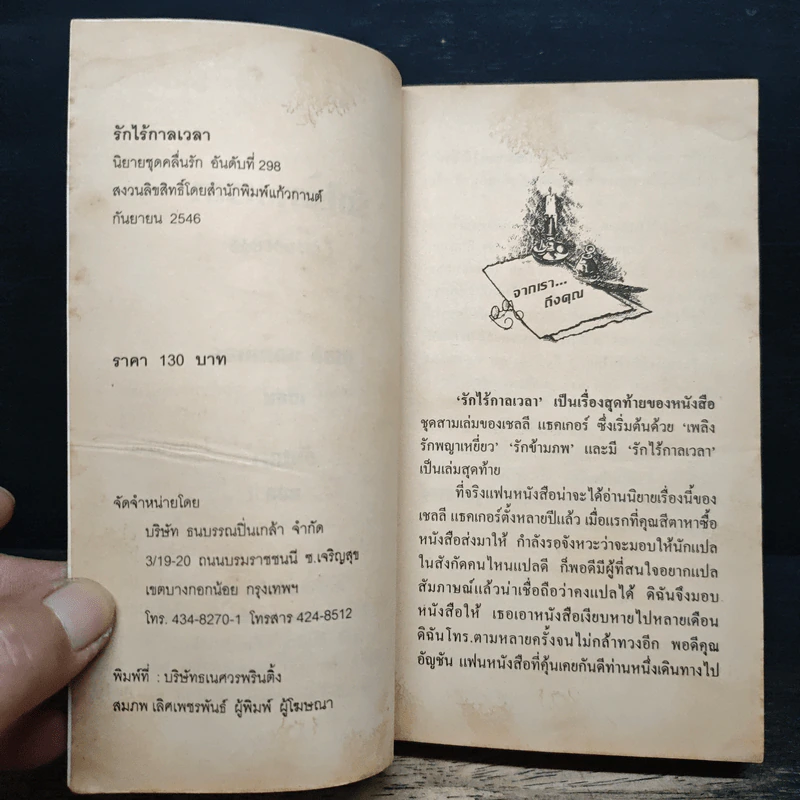 รักไร้กาลเวลา
นิยายชุดคลื่นรัก อันดับที่ 298
สงวนลิขสิทธิ์โดยสำนักพิมพ์แก้วกานต์
กันยายน 2546
ราคา 130 บาท
จัดจำหน่ายโดย
บริษัท ธนบรรณปิ่นเกล้า จำกัด
3/19-20 ถนนบรมราชชนนี ซ.เจริญสุข
เขตบางกอกน้อย กรุงเทพฯ
โทร. 434-8270-1 โทรสาร 424-8512
พิมพ์ที่ : บริษัทธเนศวรพรินติ้ง
สมภพ เลิศเพชรพันธ์ ผู้พิมพ์ ผู้โฆษณา
จากเรา...
ถึงคุณ
‘รักไร้กาลเวลา’ เป็นเรื่องสุดท้ายของหนังสือ
ชุดสามเล่มของเชลลี แธคเกอร์ ซึ่งเริ่มต้นด้วย ‘เพลิง
รักพญาเหยี่ยว’ ‘รักข้ามภพ’ และมี ‘รักไร้กาลเวลา’
เป็นเล่มสุดท้าย
ที่จริงแฟนหนังสือน่าจะได้อ่านนิยายเรื่องนี้ของ
เชลลี แธคเกอร์ตั้งหลายปีแล้ว เมื่อแรกที่คุณสีตาหาซื้อ
หนังสือส่งมาให้ กำลังรอจังหวะว่าจะมอบให้นักแปล
ในสังกัดคนไหนแปลดี ก็พอดีมีผู้ที่สนใจอยากแปล
สัมภาษณ์แล้วน่าเชื่อถือว่าคงแปลได้ ดิฉันจึงมอบ
หนังสือให้ เธอเอาหนังสือเงียบหายไปหลายเดือน
ดิฉันโทร.ตามหลายครั้งจนไม่กล้าทวงอีก พอดีคุณ
อัญชัน แฟนหนังสือที่คุ้นเคยกันดีท่านหนึ่งเดินทางไป